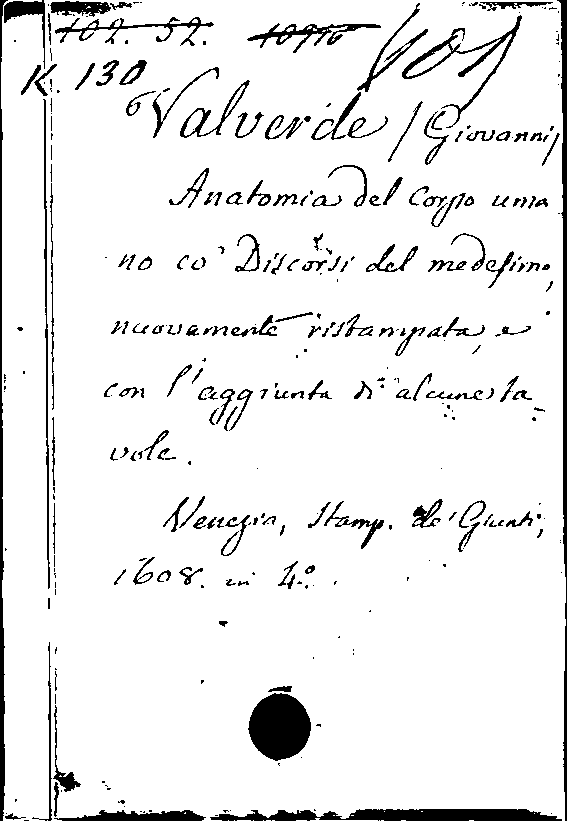 102. 52.
K. 130
Valverde / Giovanni /
Anatomia del Corpo uma
no co' Discorsi del medesimo,
nuovamente ristampata, e
con l'aggiunta di alcune ta
vole.
Venezia, Stamp. de' Giunti,
1608. in 4.º